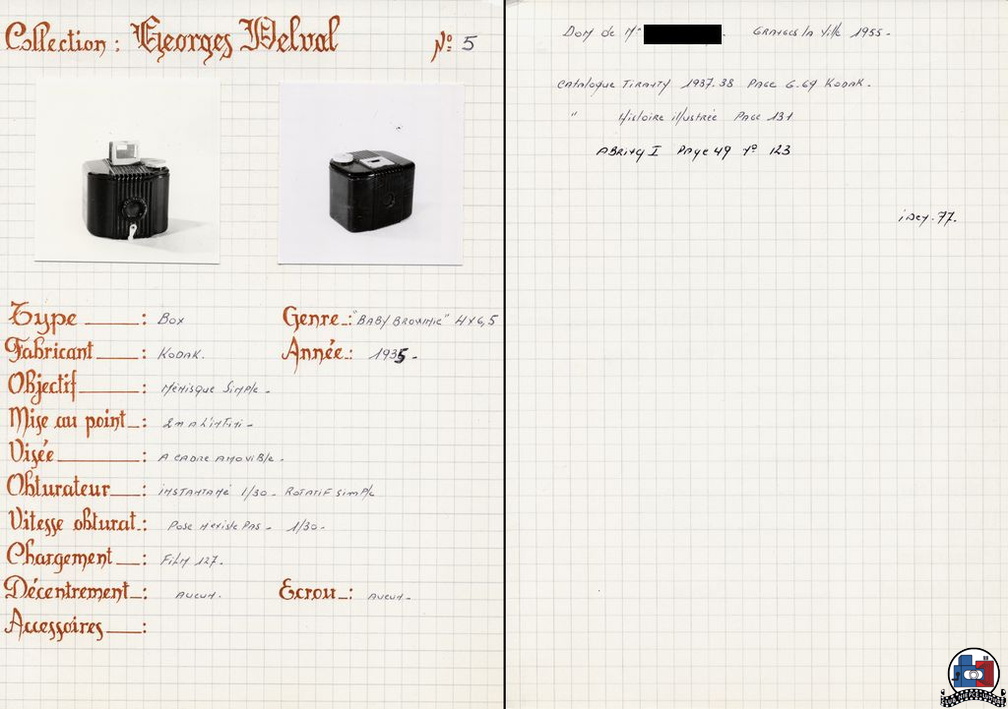 Collection : Georges Delval Nº 5
Type : Box Genre : "Baby Brownie" 4x6,5
Fabricant : Kodak. Année : 1935-
Objectif : Ménisque Simple -
Mise au point : 2m A L'infini -
Visée : A CADRE AMOViBle -
Obturateur : iNSTANTANé 1/30 - ROTATiF SiMPle
Vitesse obturat : Pose N'existe PAS - 1/30 -
Chargement : FilM 127.
Décentrement : AUCUN. Ecrou : AUCUN -
Accessoires :
DON de Mr GRANGES la Ville 1955 -
CATAlogue TiRANTY 1937.38 PAGE 6.69 KODAK.
" Histoire illustrée PAGE 131
ABRing I PAge 49 Nº 123